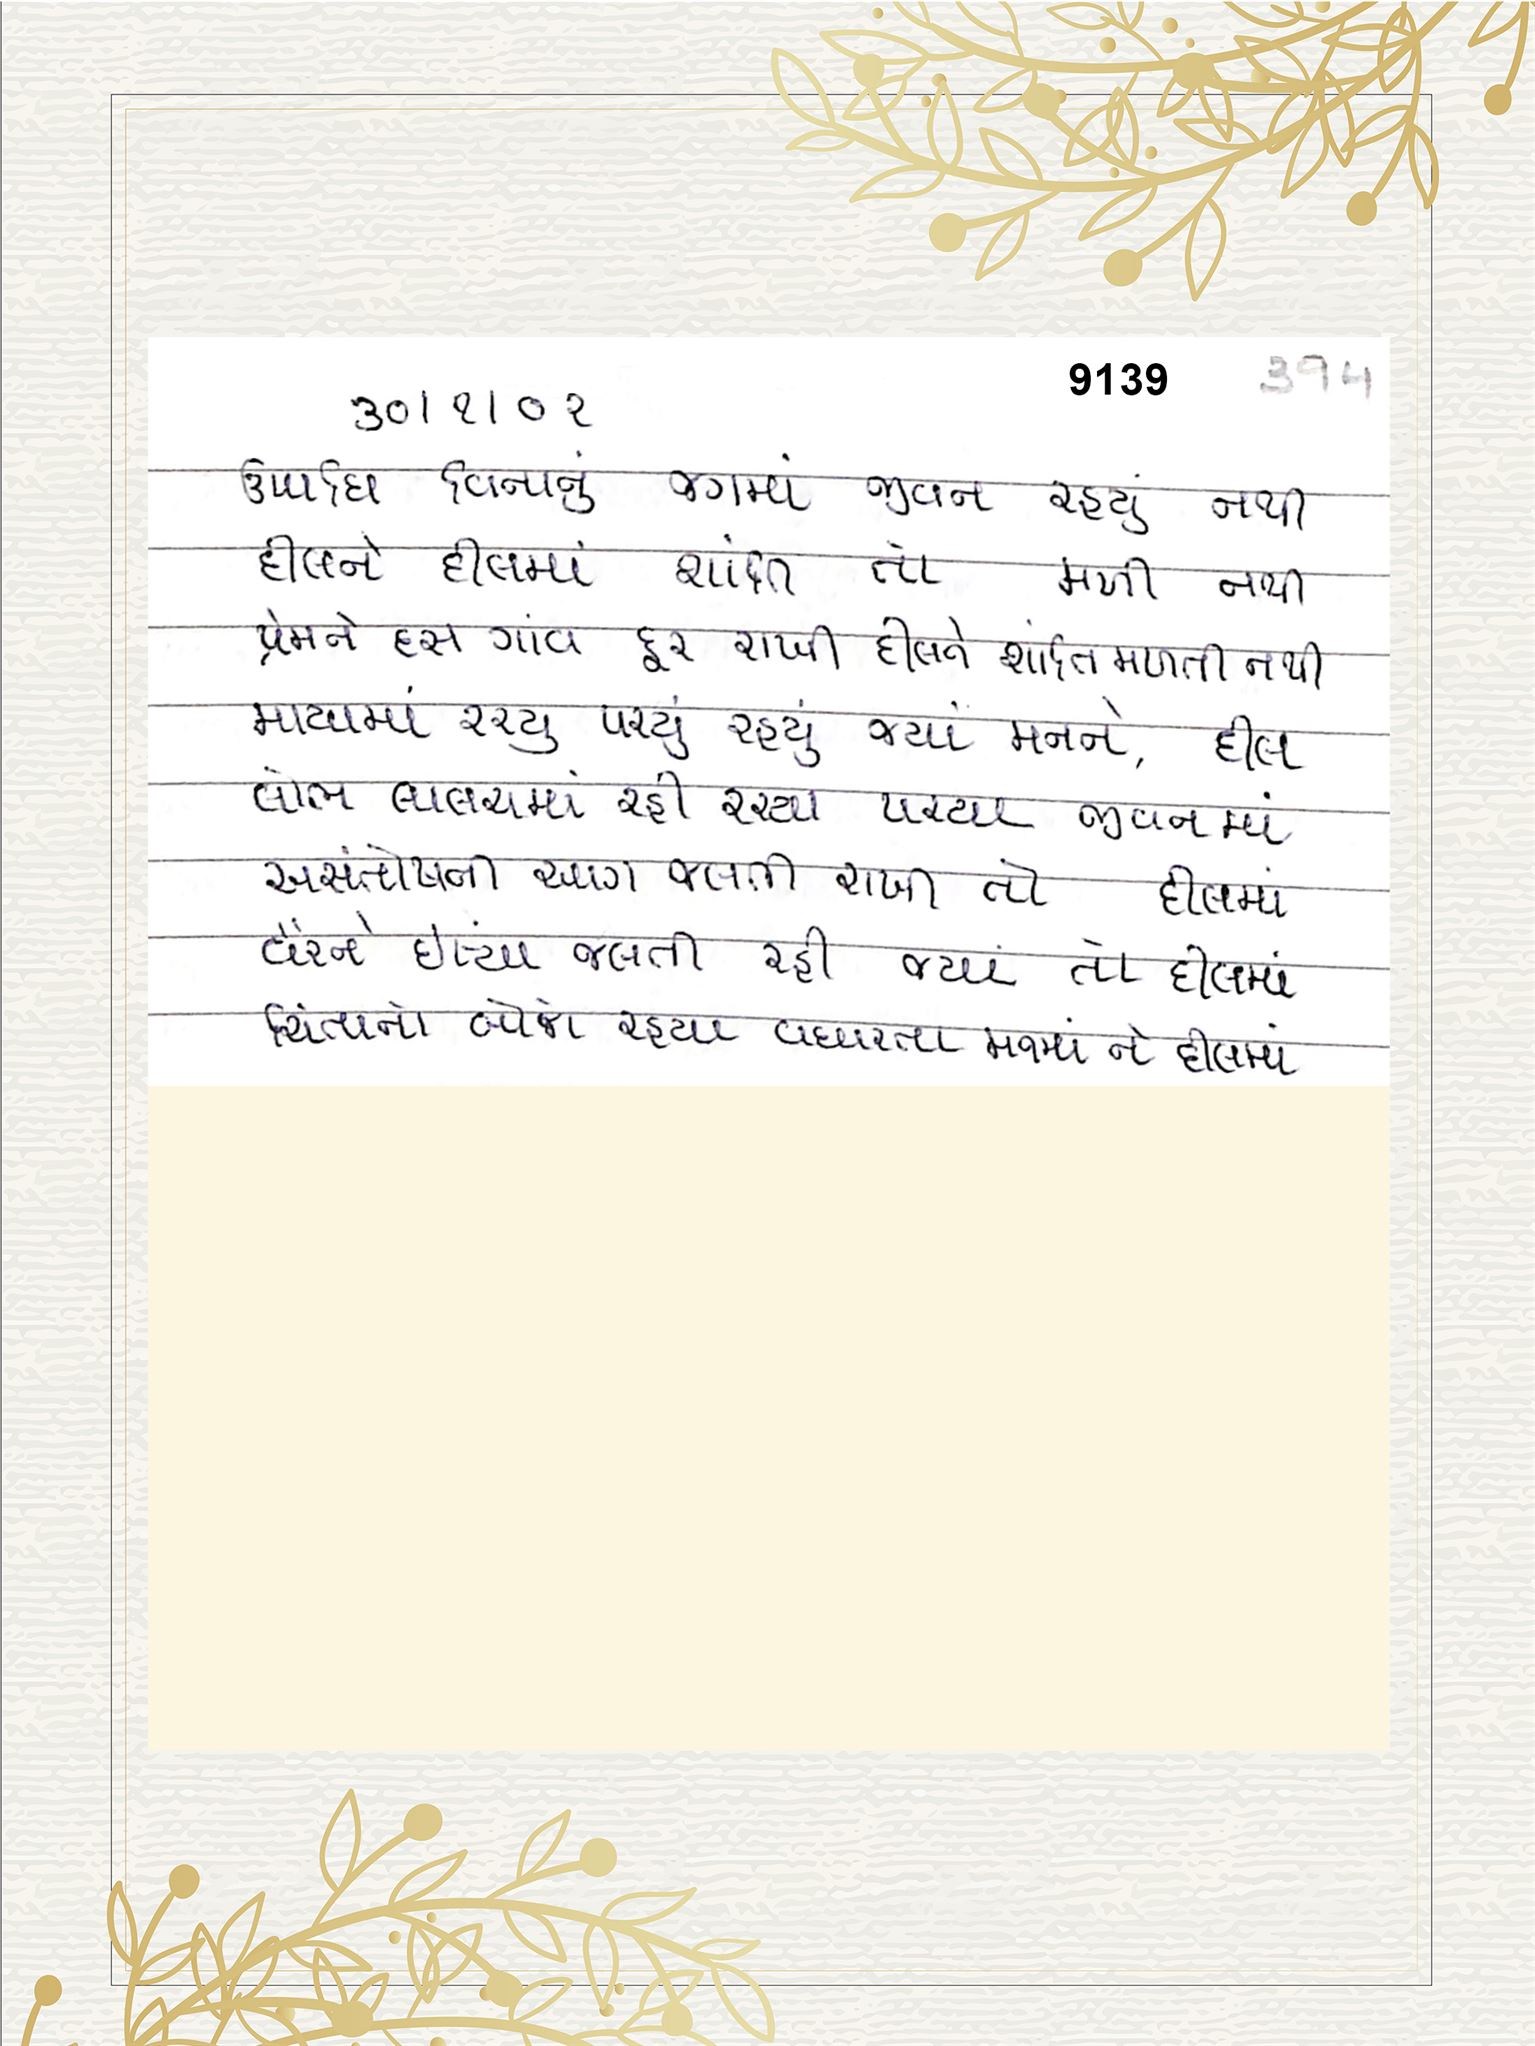 9139 394
30/૧/૦૨
ઉપાધિ વિનાનું જગમાં જીવન રહ્યું નથી
દીલને દીલમાં શાંતિ તો મળી નથી
પ્રેમને હસ ગાંવ દૂર રાખી દીલને શાંતિ મળતી નથી
માયામાં રચ્યુ પચ્યું રહ્યું જ્યાં મનને, દીલ
લોભ લાલચમાં રહી રચ્યા પચ્યા જીવનમાં
અસંતોષની આગ જલતી રાખી તો દીલમાં
વૈરને ઈર્ષ્યા જલતી રહી જ્યાં તો દીલમાં
ચિંતાનો બોજો રહ્યા વધારતા મનમાં ને દીલમાં